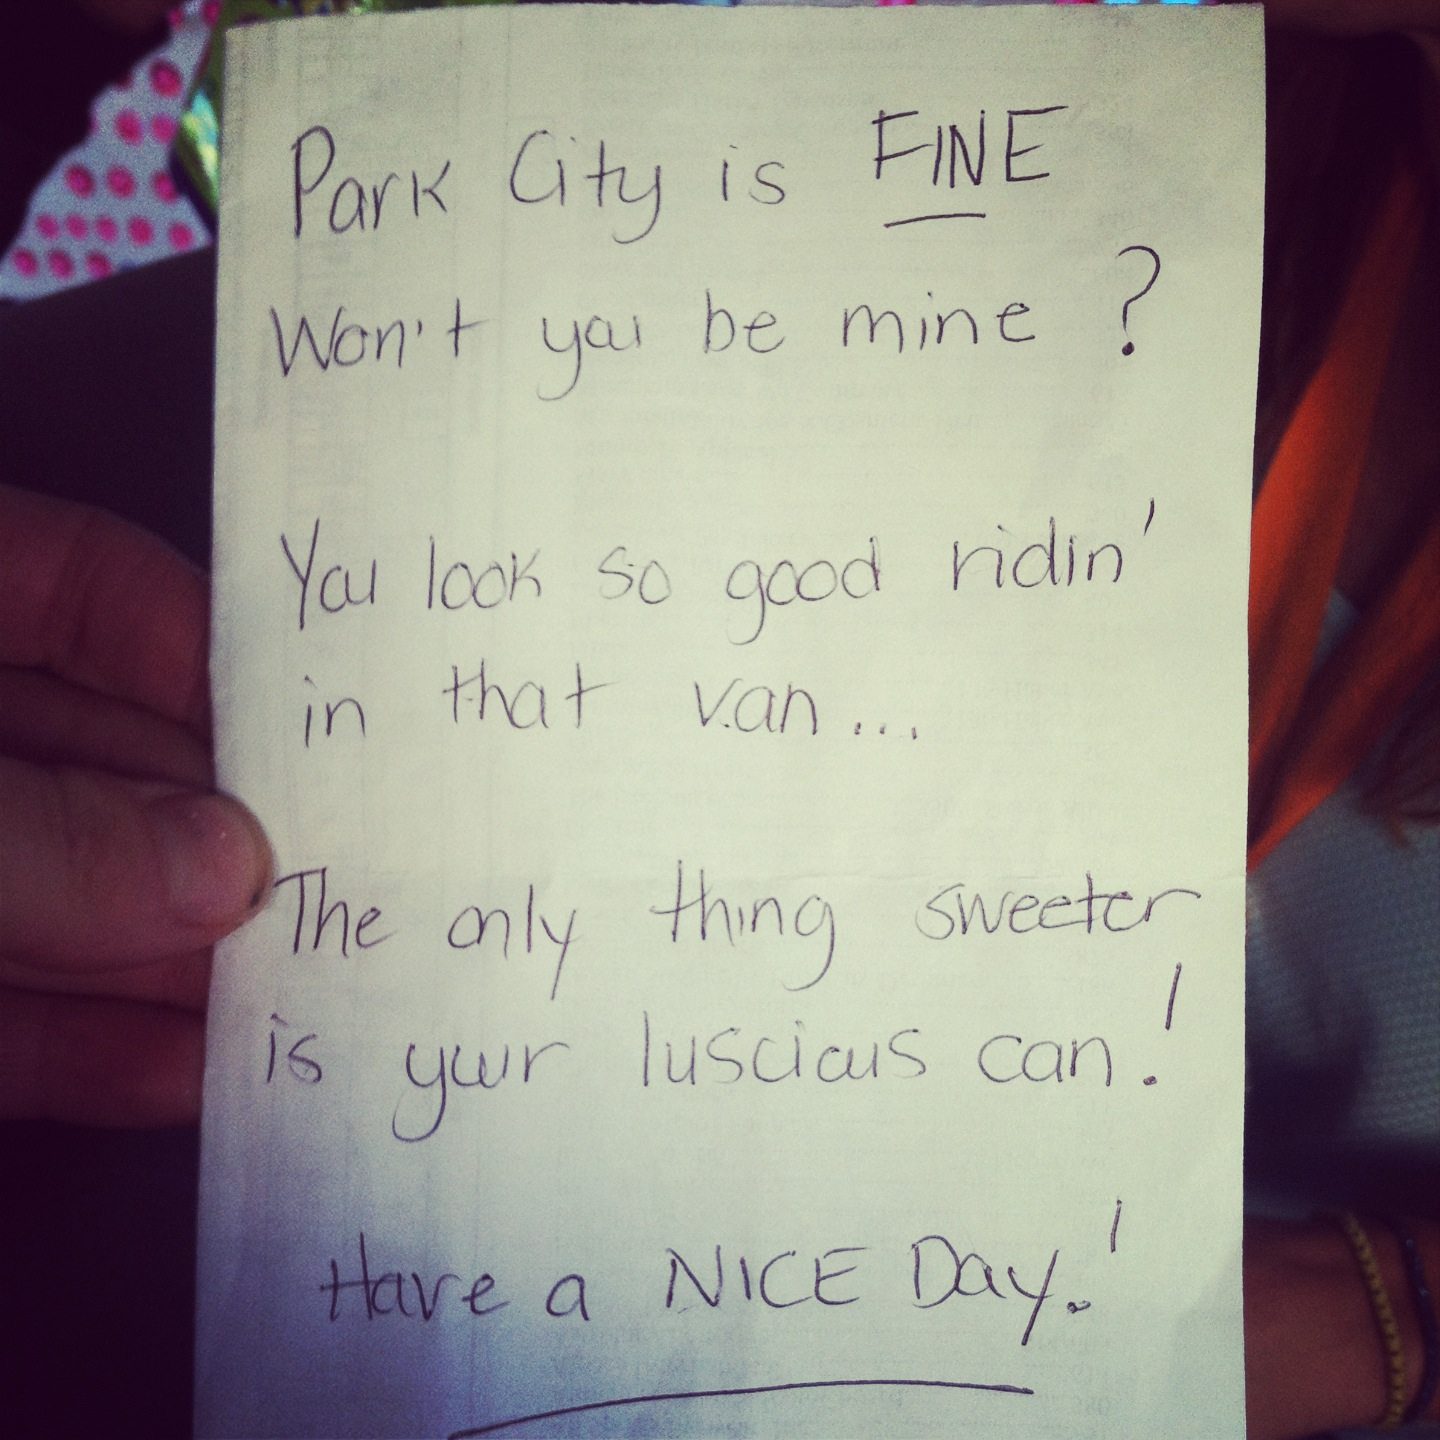 Park City is FINE
Won't you be mine ?
You look so good ridin'
in that van...
The only thing sweeter
is your luscious can!
Have a NICE Day!